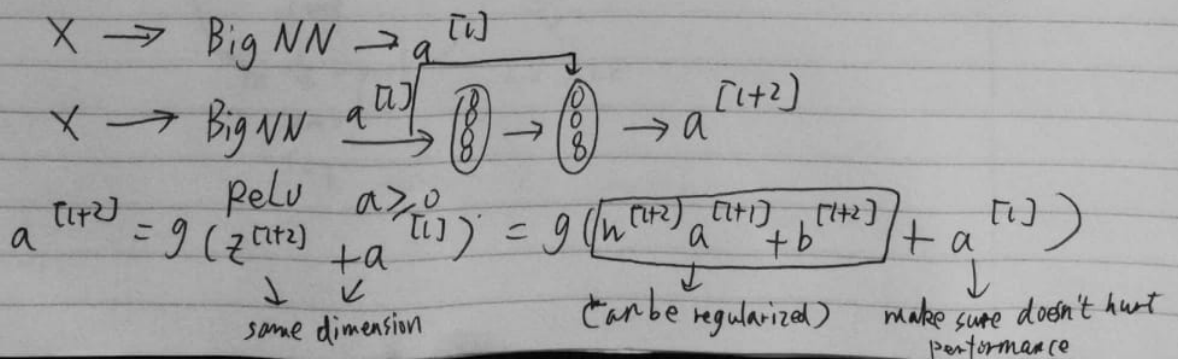 X → Big NN → a^[l]
X → Big NN a^[l] → → → a^[l+2]
ReLU a≥0
a^[l+2] = g(z^[l+2] + a^[l]) = g(w^[l+2] a^[l+1] + b^[l+2] + a^[l])
same dimension (can be regularized) make sure doesn't hurt
performance